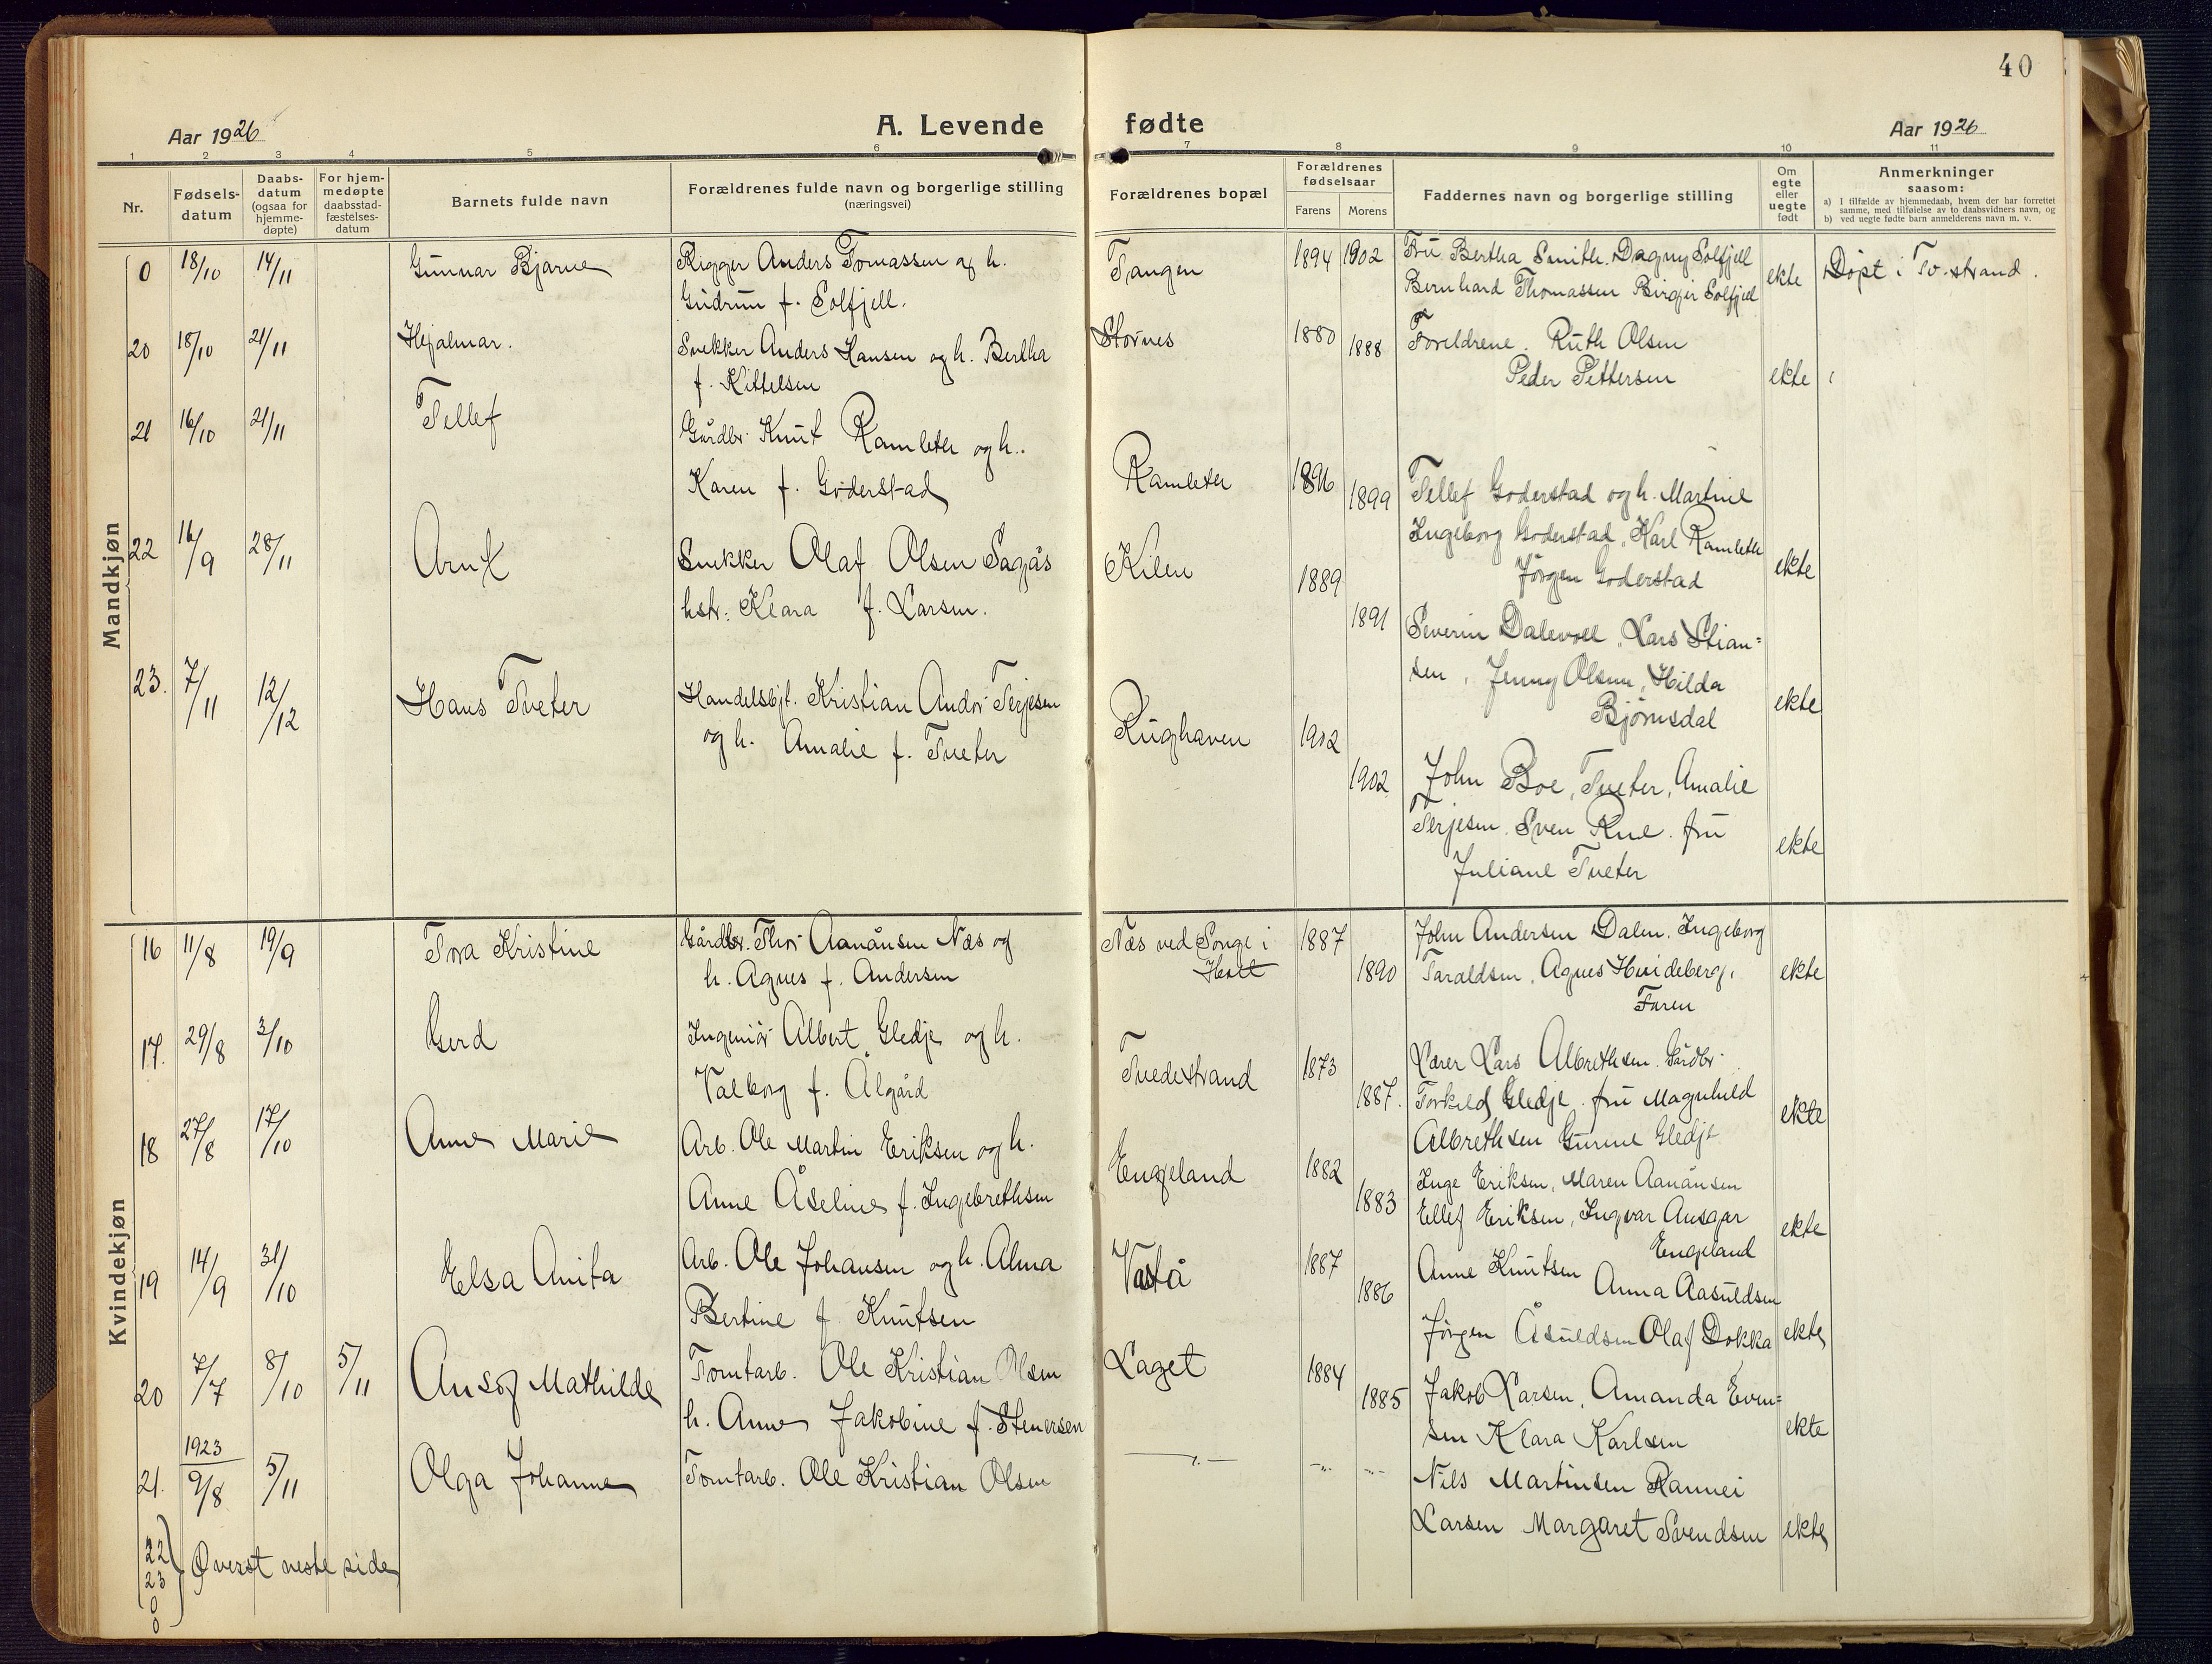 40
Aar 1926
A. Levende fødte
Aar 1926
1 2 3 4 5 6 7 8 9 10 11
Nr.
Fødsels-
datum
Daabs-
datum
(ogsaa for
hjemme-
døpte)
For hjem-
medøpte
daabsstad-
fæstelses-
datum
Barnets fulde navn
Forældrenes fulde navn og borgerlige stilling
(næringsvei)
Forældrenes bopæl
Forældrenes
fødselsaar
Farens Morens
Faddernes navn og borgerlige stilling
Om
egte
eller
uegte
født
Anmerkninger
saasom:
a) I tilfælde av hjemmedaab, hvem der har forrettet
samme, med tilføielse av to daabsvidners navn, og
b) ved uegte fødte barn anmelderens navn m. v.
Mandkjøn
0 18/10 14/11 Gunnar Bjarne Rigger Anders Tomassen og h. Tangen 1894 1902 Fru Bertha Smith. Dagny Solfjell ekte Døpt i Tv.strand.
Gudrun f. Solfjell. Bernhard Thomassen Birger Solfjell
20 18/10 21/11 Hejalmar. Snekker Anders Hansen og h. Bertha Stornes 1880 1888 Foreldrene. Ruth Olsen
f. Kittelsen Peder Pettersen ekte
21 16/10 21/11 Tellef Gårdbr. Knut Ramleth og h.
Karen f. Goderstad Ramleth 1896 1899 Tellef Goderstad og h. Martine
Ingeborg Goderstad, Karl Ramleth
Jørgen Goderstad ekte
22 16/9 28/11 Arnt Snekker Olaf Olsen Sagås Kilen 1889
hstr. Klara f. Larsen. 1891 Severin Dalevoll, Lars Stian=
sen, Jenny Olsen, Hilda
Bjørnsdal ekte
23. 7/11 12/12 Hans Tveter Handelsbjt. Kristian Andor Terjesen
og h. Amalie f. Tveter Rughaven 1902
1902 John Boe, Tveter, Amalie
Terjesen. Sven Rue. fru
Juliane Tveter ekte
Kvindekjøn
16 11/8 19/9 Tora Kristine Gårdbr. Thor Aanånsen Næs og Næs ved Songe i 1887 John Andersen Dalen. Ingeborg
h. Agnes f. Andersen Holt 1890 Taraldsen, Agnes Hvideberg, ekte
Faren
17. 29/8 3/10 Gerd Ingeniør Albert Gledje og h. Tvedestrand 1873 Lærer Lars Albrethsen. Gårdbr.
Valborg f. Ålgård 1887. Torkild Gledje. fru Magnhild ekte
Albrethsen Gurine Gledje
18 27/8 17/10 Anne Marie Arb. Ole Martin Eriksen og h. Engeland 1882 Inge Eriksen, Maren Aanånsen
Anne Åseline f. Ingebrethsen 1883 Ellef Eriksen, Ingvar Ansgar ekte
Engeland
19 14/9 31/10 Elsa Anita Arb. Ole Johansen og h. Alma Vastå 1887 Anne Knutsen Anna Aasuldsen
Bertine f Knutsen 1886 Jørgen Åsuldsen Olaf Dokka ekte
20 7/7 8/10 5/11 Ansof Mathilde Tomtarb. Ole Kristian Olsen Laget 1884
h. Anne Jakobine f. Stenersen 1885 Jakob Larsen, Amanda Even=
sen Klara Karlsen ekte
1923
21. 9/8 5/11 Olga Johanne Tomtarb. Ole Kristian Olsen —"— -"- -"- Nils Martinsen Rannei
Larsen Margaret Svendsen ekte
22
23 } Øverst neste side
0
0